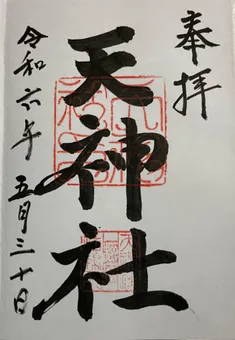 奉拝
天神社
令和六年 五月三十日